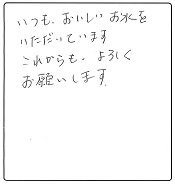 いつも、おいしいお水を
いただいています
これからも、よろしく
お願いします。